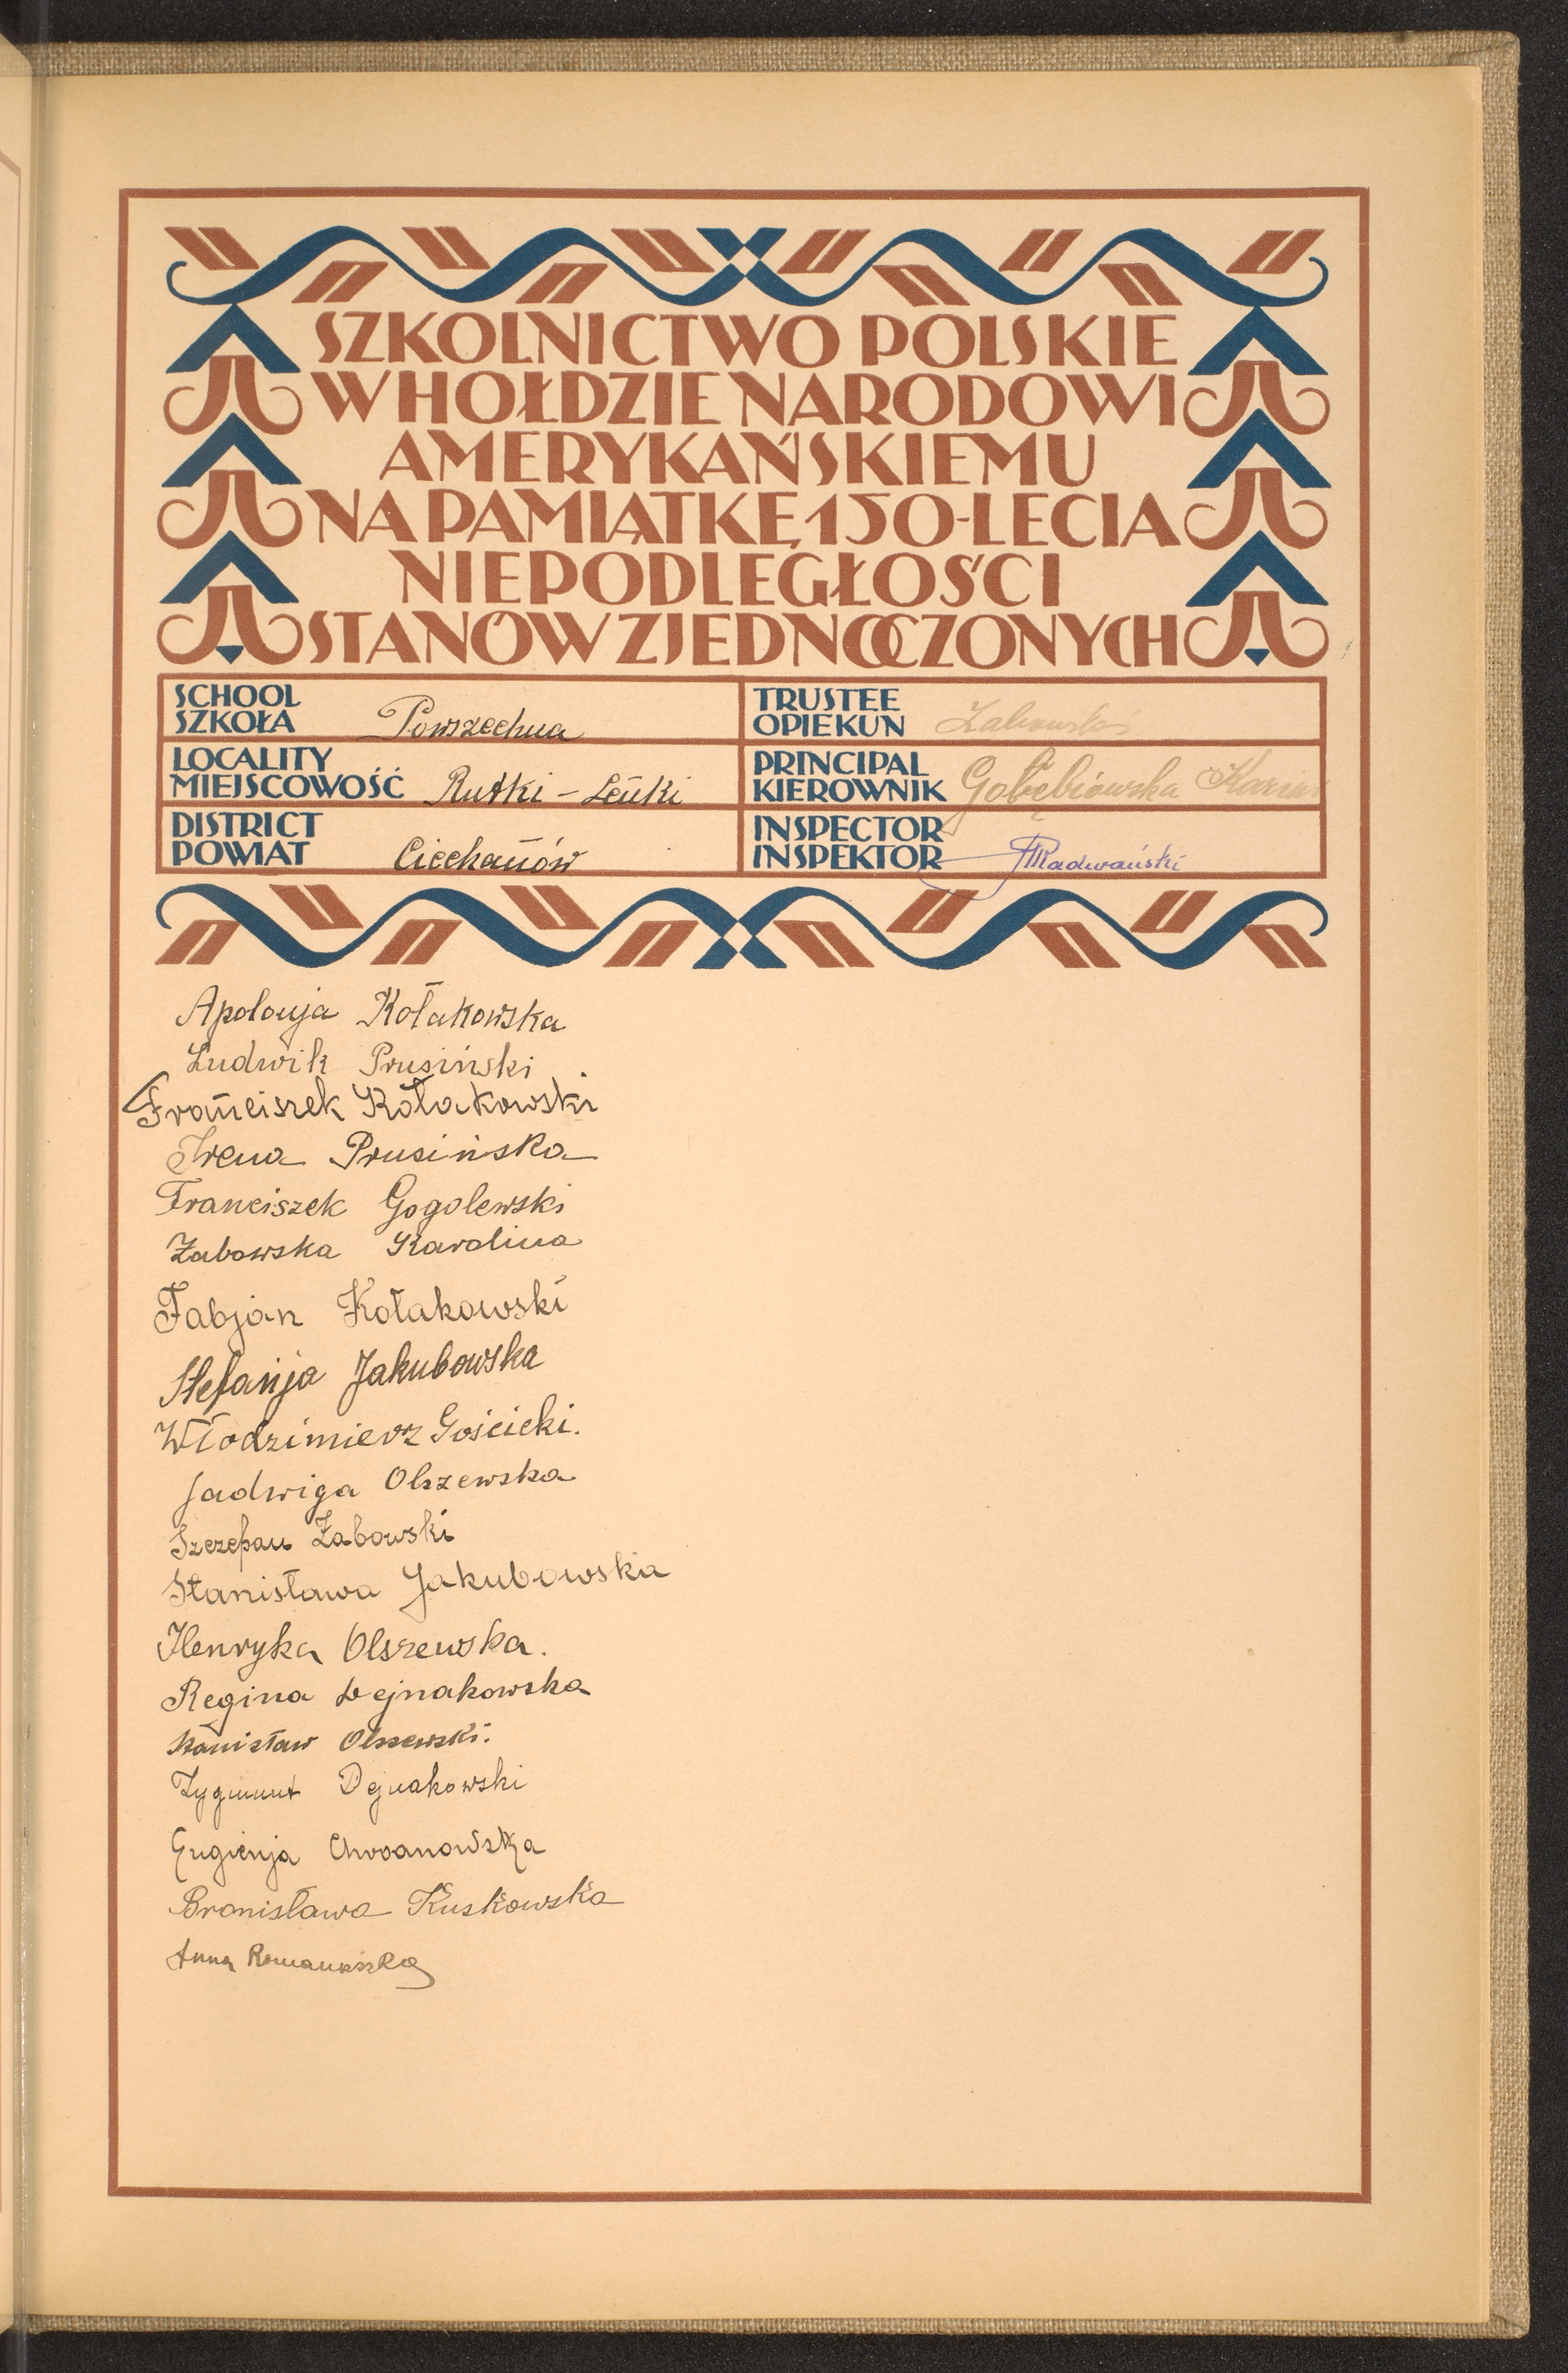 SZKOLNICTWO POLSKIE
W HOŁDZIE NARODOWI
AMERYKAŃSKIEMU
NA PAMIĄTKĘ 150-LECIA
NIEPODLEGŁOŚCI
STANÓW ZJEDNOCZONYCH
SCHOOL
SZKOŁA Powszechna
TRUSTEE
OPIEKUN
LOCALITY
MIEJSCOWOŚĆ Rutki - Leńki
PRINCIPAL
KIEROWNIK Gołębiowska
DISTRICT
POWIAT Ciechanów
INSPECTOR
INSPEKTOR Radwański
Apolonja Kołakowska
Ludwik Prusiński
Franciszek Kołakowski
Irena Prusińska
Franciszek Gogolewski
Żabowska Karolina
Fabjan Kołakowski
Stefanja Jakubowska
Włodzimierz Gościcki.
Jadwiga Olszewska
Szczepan Żabowski
Stanisława Jakubowska
Henryka Olszewska.
Regina Dejnakowska
Stanisław Olszewski.
Zygmunt Dejnakowski
Eugienja
Bronisława Kuskowska
Anna